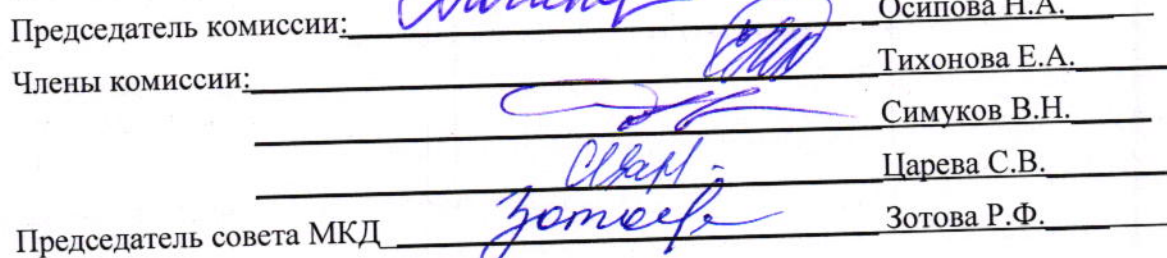 Председатель комиссии: Осипова Н.А.
Члены комиссии: Тихонова Е.А.
Симуков В.Н.
Царева С.В.
Председатель совета МКД Зотова Р.Ф.